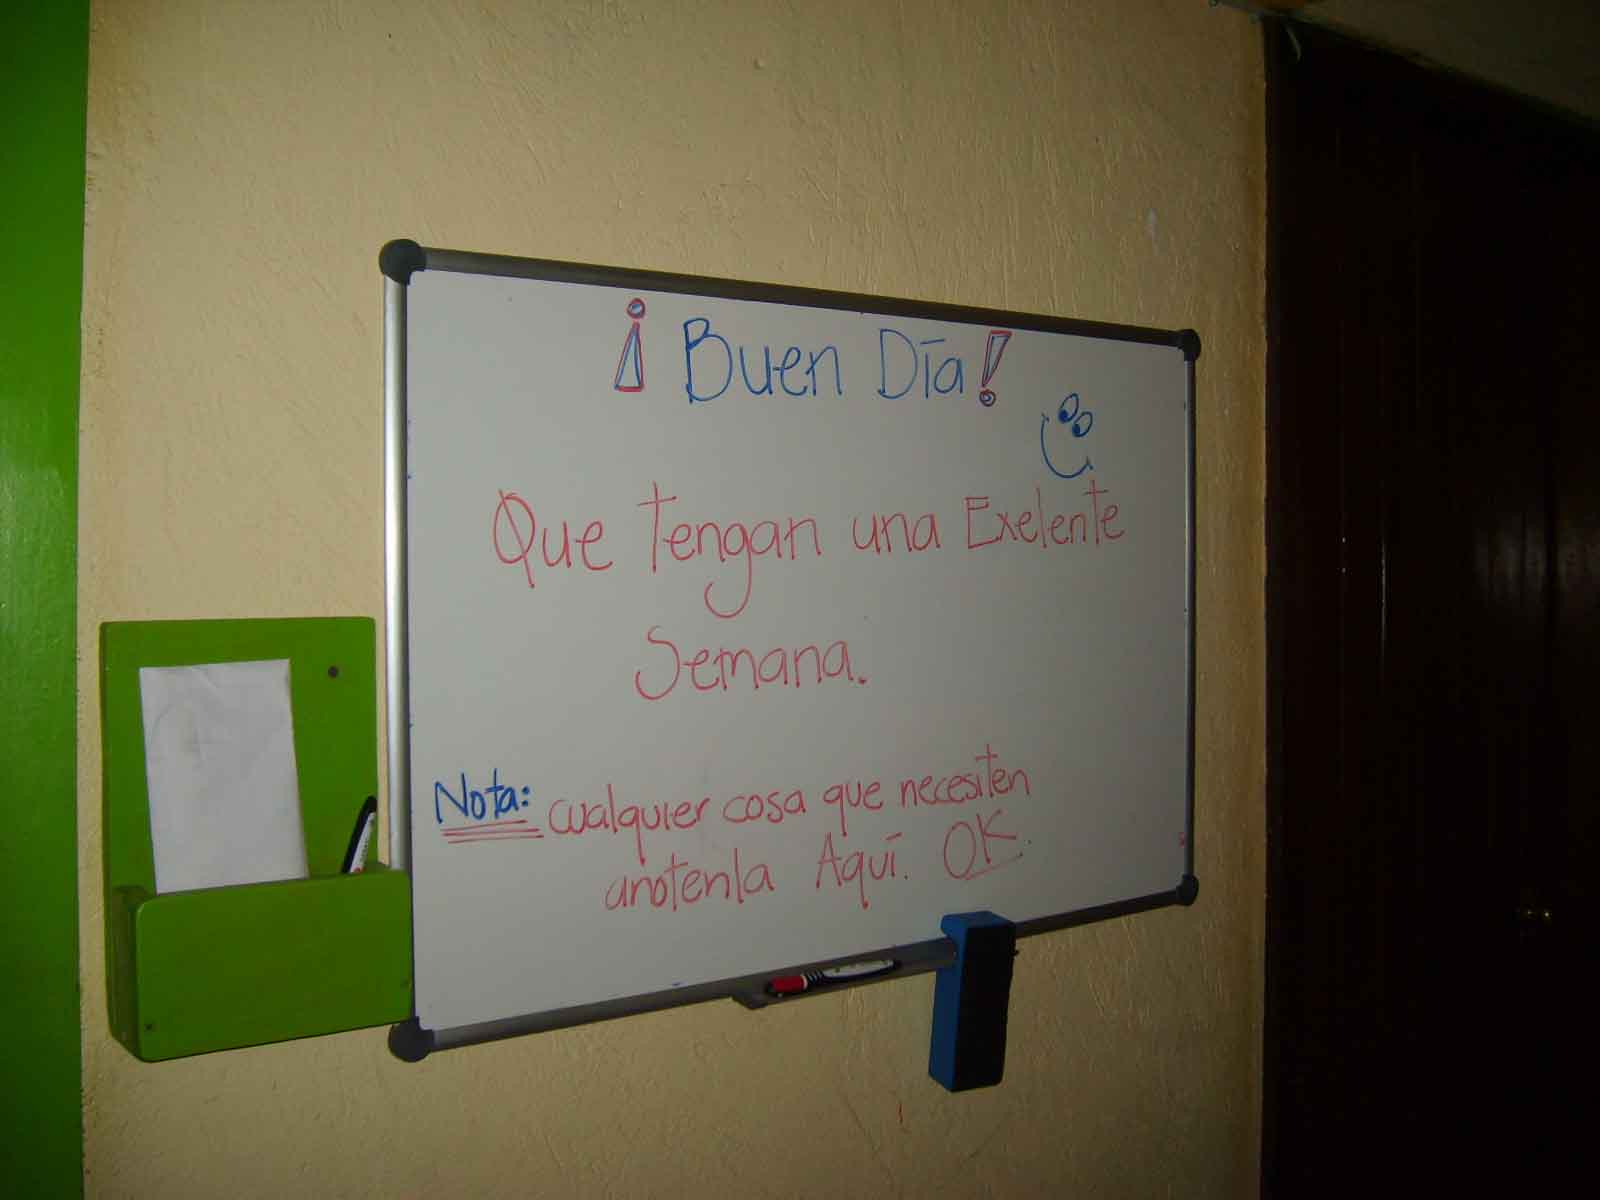 ¡Buen Día!
Que tengan una Exelente
Semana.
Nota: cualquier cosa que necesiten
anotenla Aquí. OK.